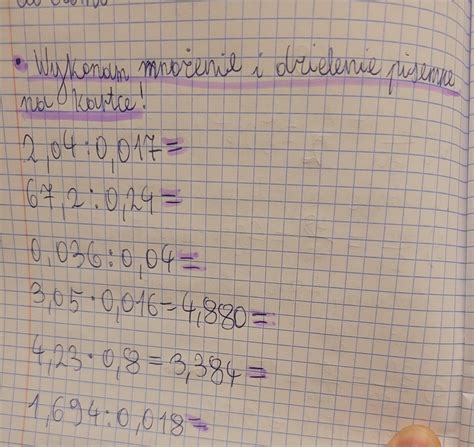 • Wykonam mnożenie i dzielenie pisemne
na kartce!
2,04:0,017=
67,2:0,24=
0,036:0,04=
3,05·0,016=4,880=
4,23·0,8=3,384=
1,694:0,018=